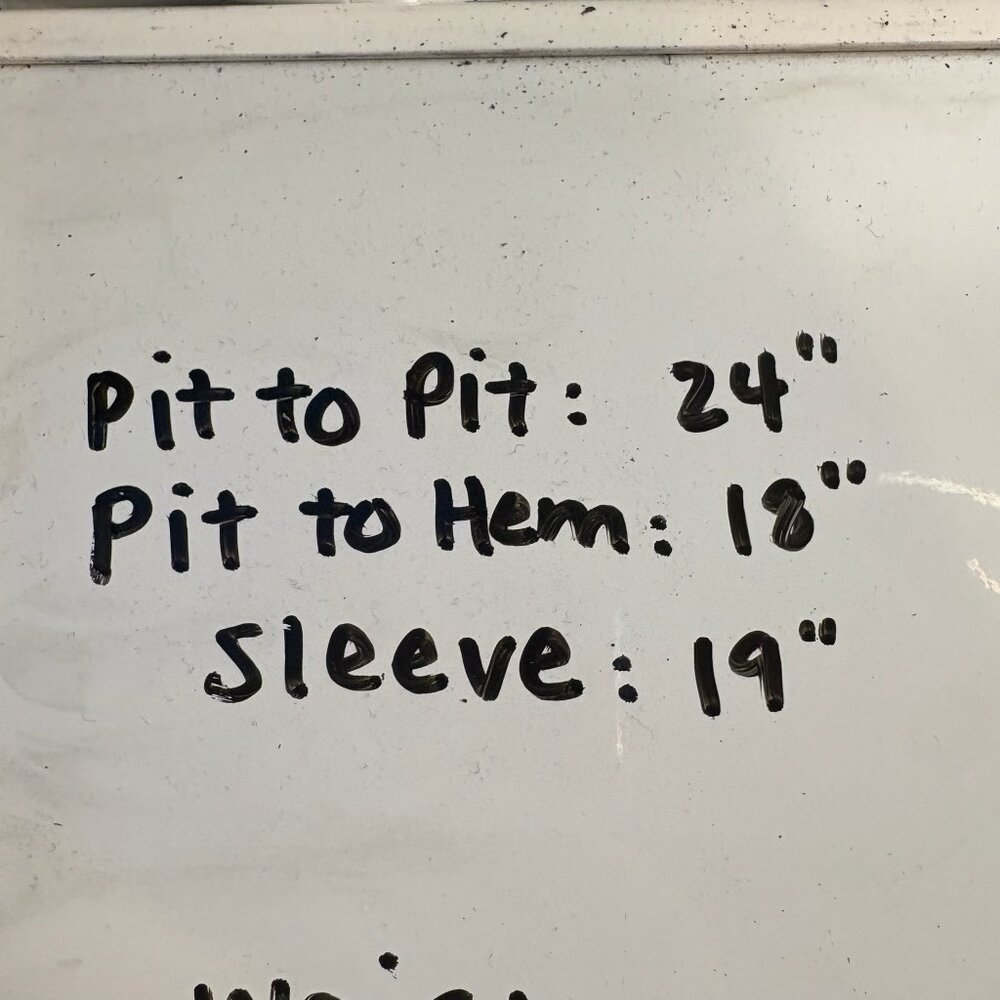 Pit to Pit: 24"
Pit to Hem: 18"
Sleeve: 19"